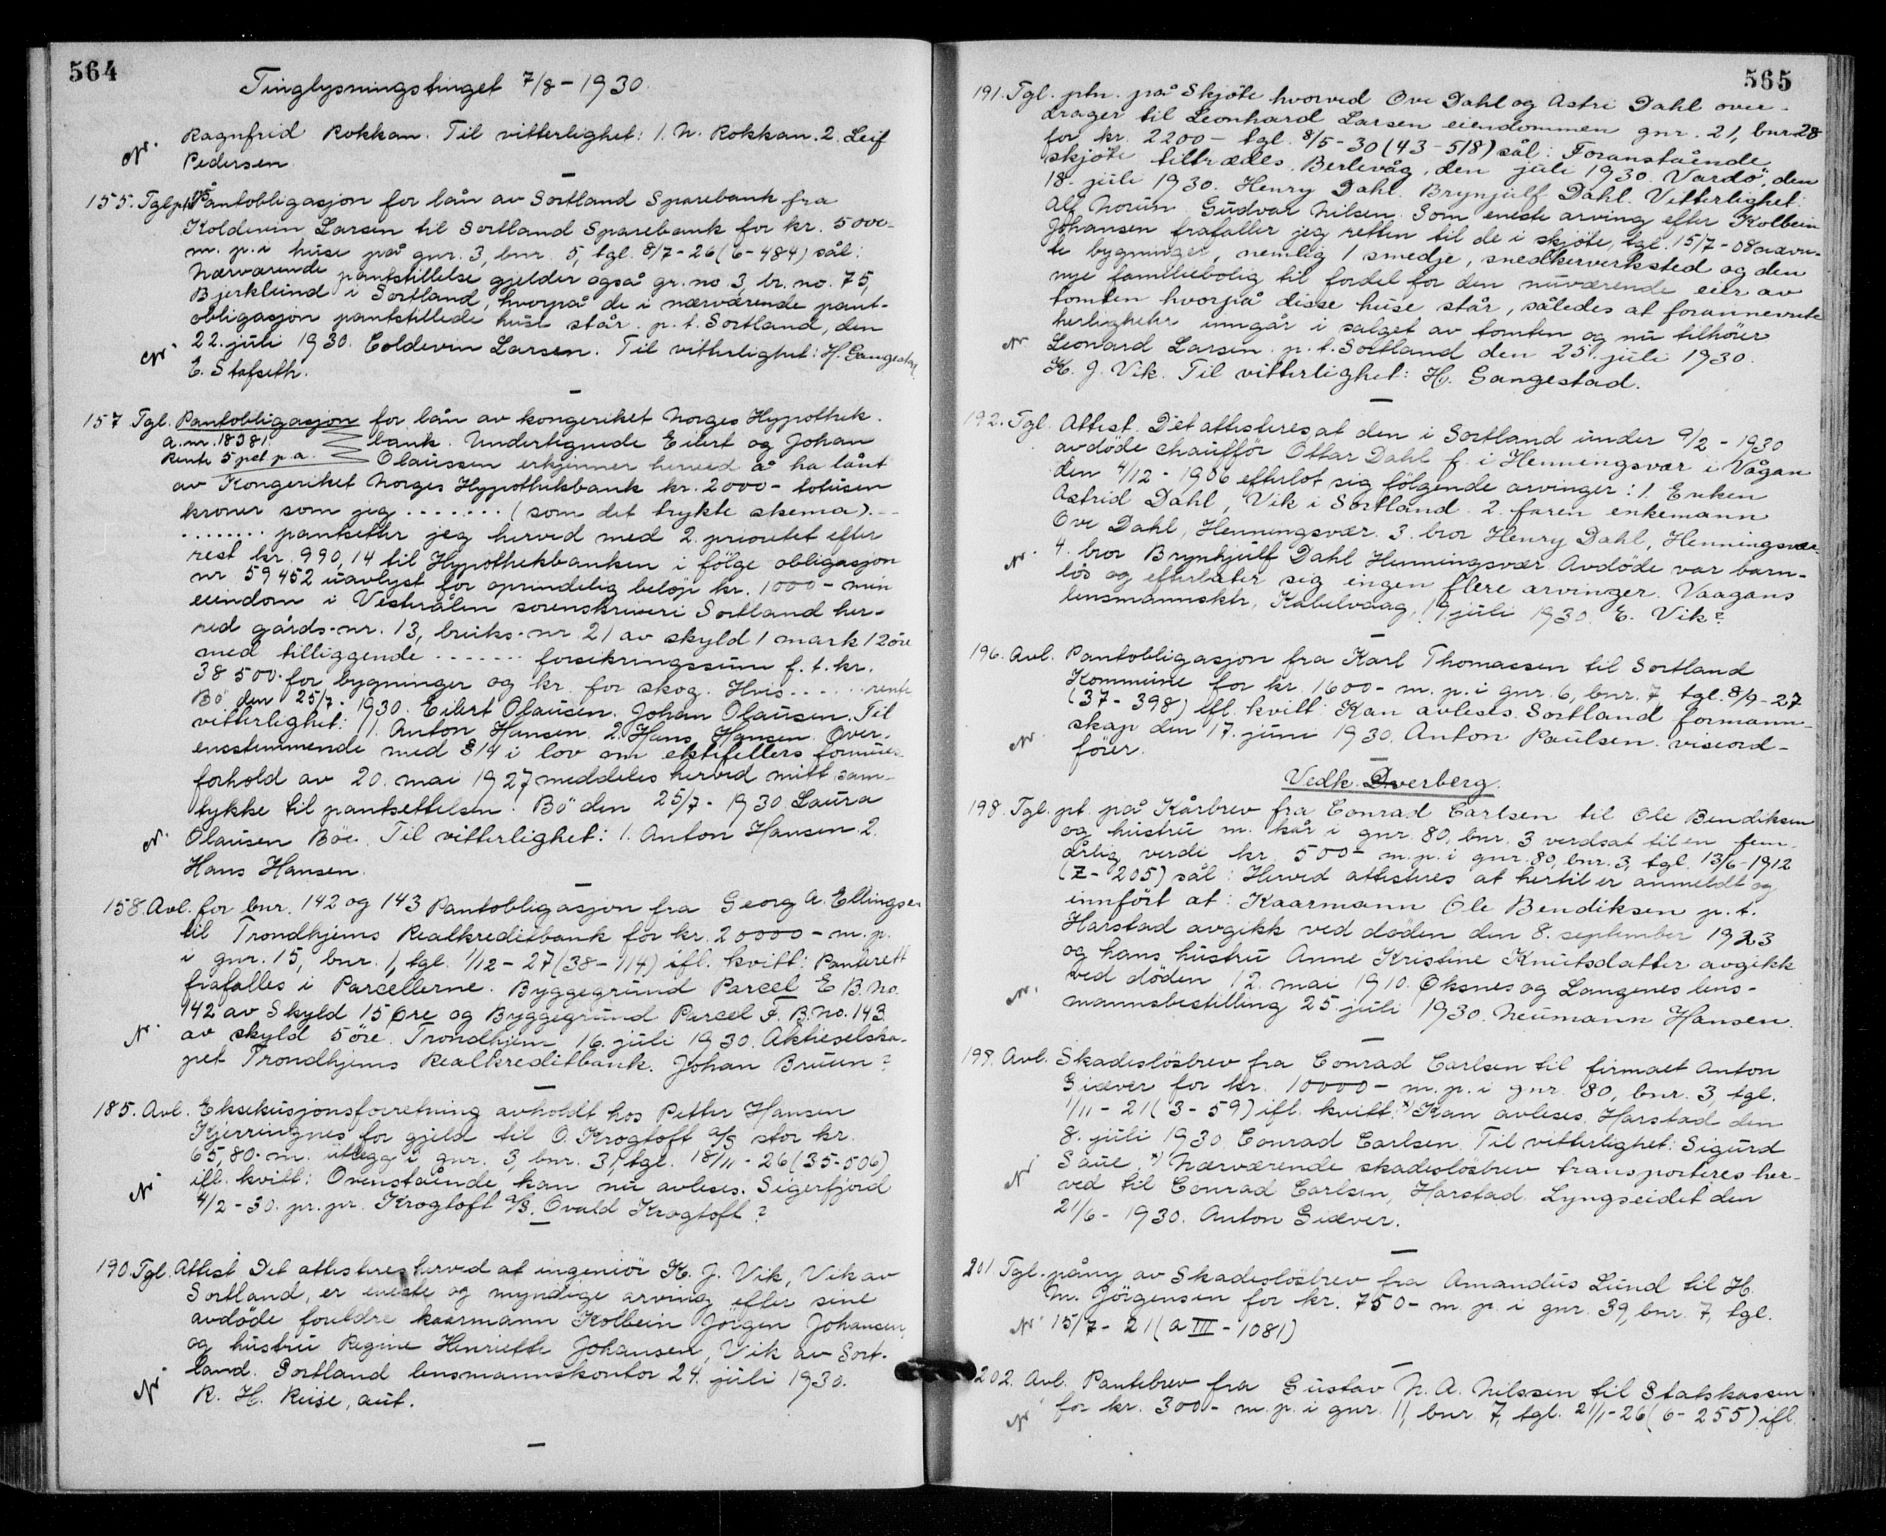 564
Tinglysningstinget 7/8 - 1930.
Ragnfrid Rokkan. Til vitterlighet: 1. N. Rokkan. 2. Leif
Pedersen.
155. Tgl. pt. på Pantobligasjon for lån av Sortland Sparebank fra
Koldevin Larsen til Sortland Sparebank for kr. 5000-
m. p. i huse på gnr. 3, bnr. 5, tgl. 8/7-26 (6-484) sål:
Nærværende pantstillelse gjelder også gr. no. 3, br. no. 75,
Bjerklund i Sortland, hvorpå de i nærværende pant-
obligasjon pantstillede huse står. p. t. Sortland, den
22. juli 1930. Coldevin Larsen. Til vitterlighet: H. Gangestad,
E. Stafseth.
157 Tgl. Pantobligasjon for lån av kongeriket Norges Hypothek-
a. nr. 18381. bank. Undertegnede Eilert og Johan
Rente 5 pct. p. a. Olaussen erkjenner herved å ha lånt
av Kongeriket Norges Hypothekbank kr. 2000- totusen
kroner som jeg ....... (som det trykte skema). --
........ pantsetter jeg herved med 2. prioritet efter
rest kr. 990,14 til Hypothekbanken i følge obligasjon
nr. 59452 uavlyst for oprindelig beløp kr. 1000- min
eiendom i Vesterålen sorenskriveri Sortland her-
red gårds-nr. 13, bruks-nr. 21 av skyld 1 mark 12 øre
med tilliggende ....... forsikringssum f. t. kr.
38500 for bygninger og kr. for skog. Hvis ...... rente
Bö den 25/7- 1930. Eilert Olausen. Johan Olausen. Til
vitterlighet: 1. Anton Hansen. 2. Hans Hansen. Over-
ensstemmende med § 14 i lov om ektefellers formues-
forhold av 20. mai 1927 meddeles herved mitt sam-
tykke til pantsettelsen. Bö den 25/7- 1930 Laura
Olausen Böe. Til vitterlighet: 1. Anton Hansen 2.
Hans Hansen.
158. Avl. for bnr. 142 og 143 Pantobligasjon fra Georg A. Ellingsen
til Trondhjems Realkreditbank for kr. 20000- m. p.
i gnr. 15, bnr. 1, tgl. 1/12-27 (38-114) ifl. kvitt: Panterett
frafalles i Parcellerne. Byggegrund Parcel E B. No.
142 av Skyld 15 Øre og Byggegrund Parcel F. B. No. 143
av skyld 5 öre. Trondhjem 16. juli 1930. Aktieselska-
pet Trondhjems Realkreditbank. Johan Bruun?
185. Avl. Eksekusjonsforretning avholdt hos Petter Hansen
Kjerringnes for gjeld til O. Krogtoft A/S stor kr.
65,80- m. utlegg i gnr. 3, bnr. 31, tgl. 18/11-26 (35-506)
ifl. kvitt: Ovenstående kan nu avleses. Sigerfjord
4/2-30. pr. pr. Krogtoft A/S. Ovald Krogtoft?
190. Tgl. Attest Det attesteres herved at ingeniör K. J. Vik, Vik av
Sortland, er eneste og myndige arving efter sine
avdöde foreldre kaarmann Kolbein Jörgen Johansen,
og hustru Regine Henriette Johansen, Vik av Sort-
land. Sortland lensmannskontor 24. juli 1930.
R. H. Ruse, aut.
565
191. Tgl. ptn. på Skjöte hvorved Ove Dahl og Astri Dahl over-
drager til Leonhard Larsen eiendommen gnr. 21, bnr. 28
for kr. 2200- tgl. 8/5-30 (43-518) sål: Foranstående
skjöte tiltrædes. Berlevåg, den juli 1930. Vardö, den
18. juli 1930. Henry Dahl. Brynjulf Dahl. Vitterlighet:
Alf Norum Gudvar Nilsen. Som eneste arving efter Kolbein
Johansen frafaller jeg retten til de i skjöte, tgl. 15/7-08 nævn-
te bygninger, nemlig 1 smedje, snedkerverksted og den
nye familiebolig til fordel for den nuværende eier av
tomten hvorpå disse huse står, således at forannevnte
herligheter inngår i salget av tomten og nu tilhöier
Leonard Larsen. p. t. Sortland den 25. juli 1930.
K. J. Vik. Til vitterlighet: H. Gangestad.
192. Tgl. Attest. Det attesteres at den i Sortland under 9/2-1930
avdöde chaufför Ottar Dahl f. i Henningsvær i Vågan
den 4/12-1906 efterlot sig fölgende arvinger: 1. Enken
Astrid Dahl, Vik i Sortland. 2. faren enkemann
Ove Dahl, Henningsvær. 3. bror Henry Dahl, Henningsvær
4. bror Brynhjulf Dahl Henningsvær. Avdöde var barn-
lös og efterlater sig ingen flere arvinger. Vaagans
lensmannsktr, Kabelvaag, 19 juli 1930. E. Vik?
196. Avl. Pantobligasjon fra Karl Thomassen til Sortland
Kommune for kr. 1600- m. p. i gnr. 6, bnr. 7 tgl. 8/9-27
(37-398) ifl. kvitt: Kan avleses. Sortland formann-
skap den 17. juni 1930. Anton Paulsen. viseord-
förer.
Vedk. Dverberg.
198. Tgl. pt. på Kårbrev fra Conrad Carlsen til Ole Bendiksen
og hustru m. kår i gnr. 80, bnr. 3 verdsat til en fem-
årlig verdi kr. 500- m. p. i gnr. 80, bnr. 3, tgl. 13/6-1912
(Z-205) sål: Herved attesteres at hertil er anmeldt og
innfört at: Kaarmann Ole Bendiksen p. t.
Harstad avgikk ved döden den 8. september 1923
og hans hustru Anne Kristine Knutsdatter avgikk
ved döden 12. mai 1910. Øksnes og Langenes lens-
mannsbestilling 25 juli 1930. Neumann Hansen.
199. Avl. Skadeslösbrev fra Conrad Carlsen til firmaet Anton
Giæver for kr. 10000- m. p. i gnr. 80, bnr. 3 tgl.
1/11-21 (3-59) ifl. kvitt: x) Kan avleses, Harstad den
8. juli 1930. Conrad Carlsen. Til vitterlighet: Sigurd
Saue. x) Nærværende skadeslösbrev transporteres her-
ved til Conrad Carlsen, Harstad. Lyngseidet den
21/6-1930. Anton Giæver.
201. Tgl. påny av Skadeslösbrev fra Amandus Lund til H.
M. Jörgensen for kr. 750- m. p. i gnr. 39, bnr. 7, tgl.
15/7-21 (A III-1081)
202. Avl. Pantebrev fra Gustav N. A. Nilssen til Statskassen
for kr. 300- m. p. i gnr. 11, bnr. 7, tgl. 21/1-26 (6-255) ifl.